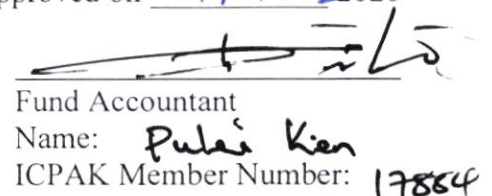 pproved on
Fund Accountant
Name: Pulei Kien
ICPAK Member Number: 17884